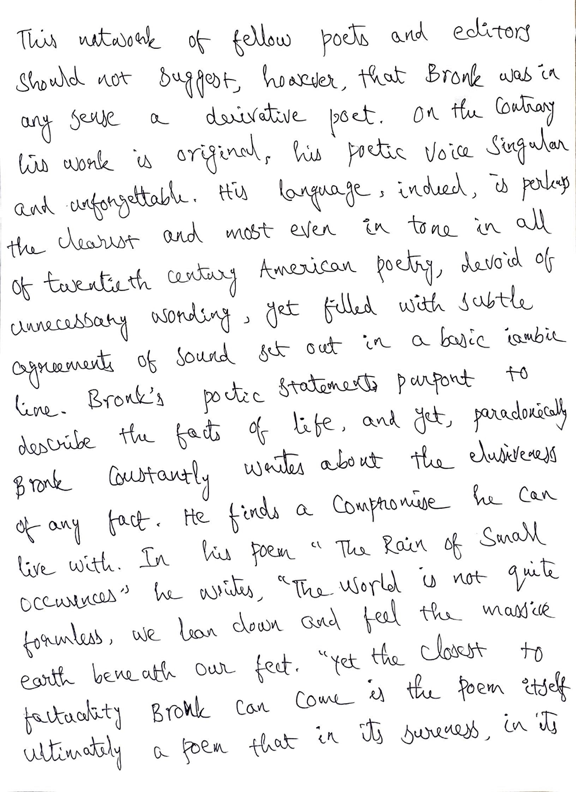 This network of fellow poets and editors
should not suggest, however, that Bronk was in
any sense a derivative poet. On the Contrary
his work is original, his poetic voice singular
and unforgettable. His language, indeed, is perhaps
the clearest and most even in tone in all
of twentieth century American poetry, devoid of
unnecessary wording, yet filled with subtle
agreements of sound set out in a basic iambic
line. Bronk's poetic statements purport to
describe the facts of life, and yet, paradoxically
Bronk Constantly writes about the elusiveness
of any fact. He finds a Compromise he can
live with. In his poem "The Rain of Small
occurences" he writes, "The World is not quite
formless, we lean down and feel the massive
earth beneath our feet. "yet the closest to
factuality Bronk can come is the poem itself
ultimately a poem that in its sureness, in its